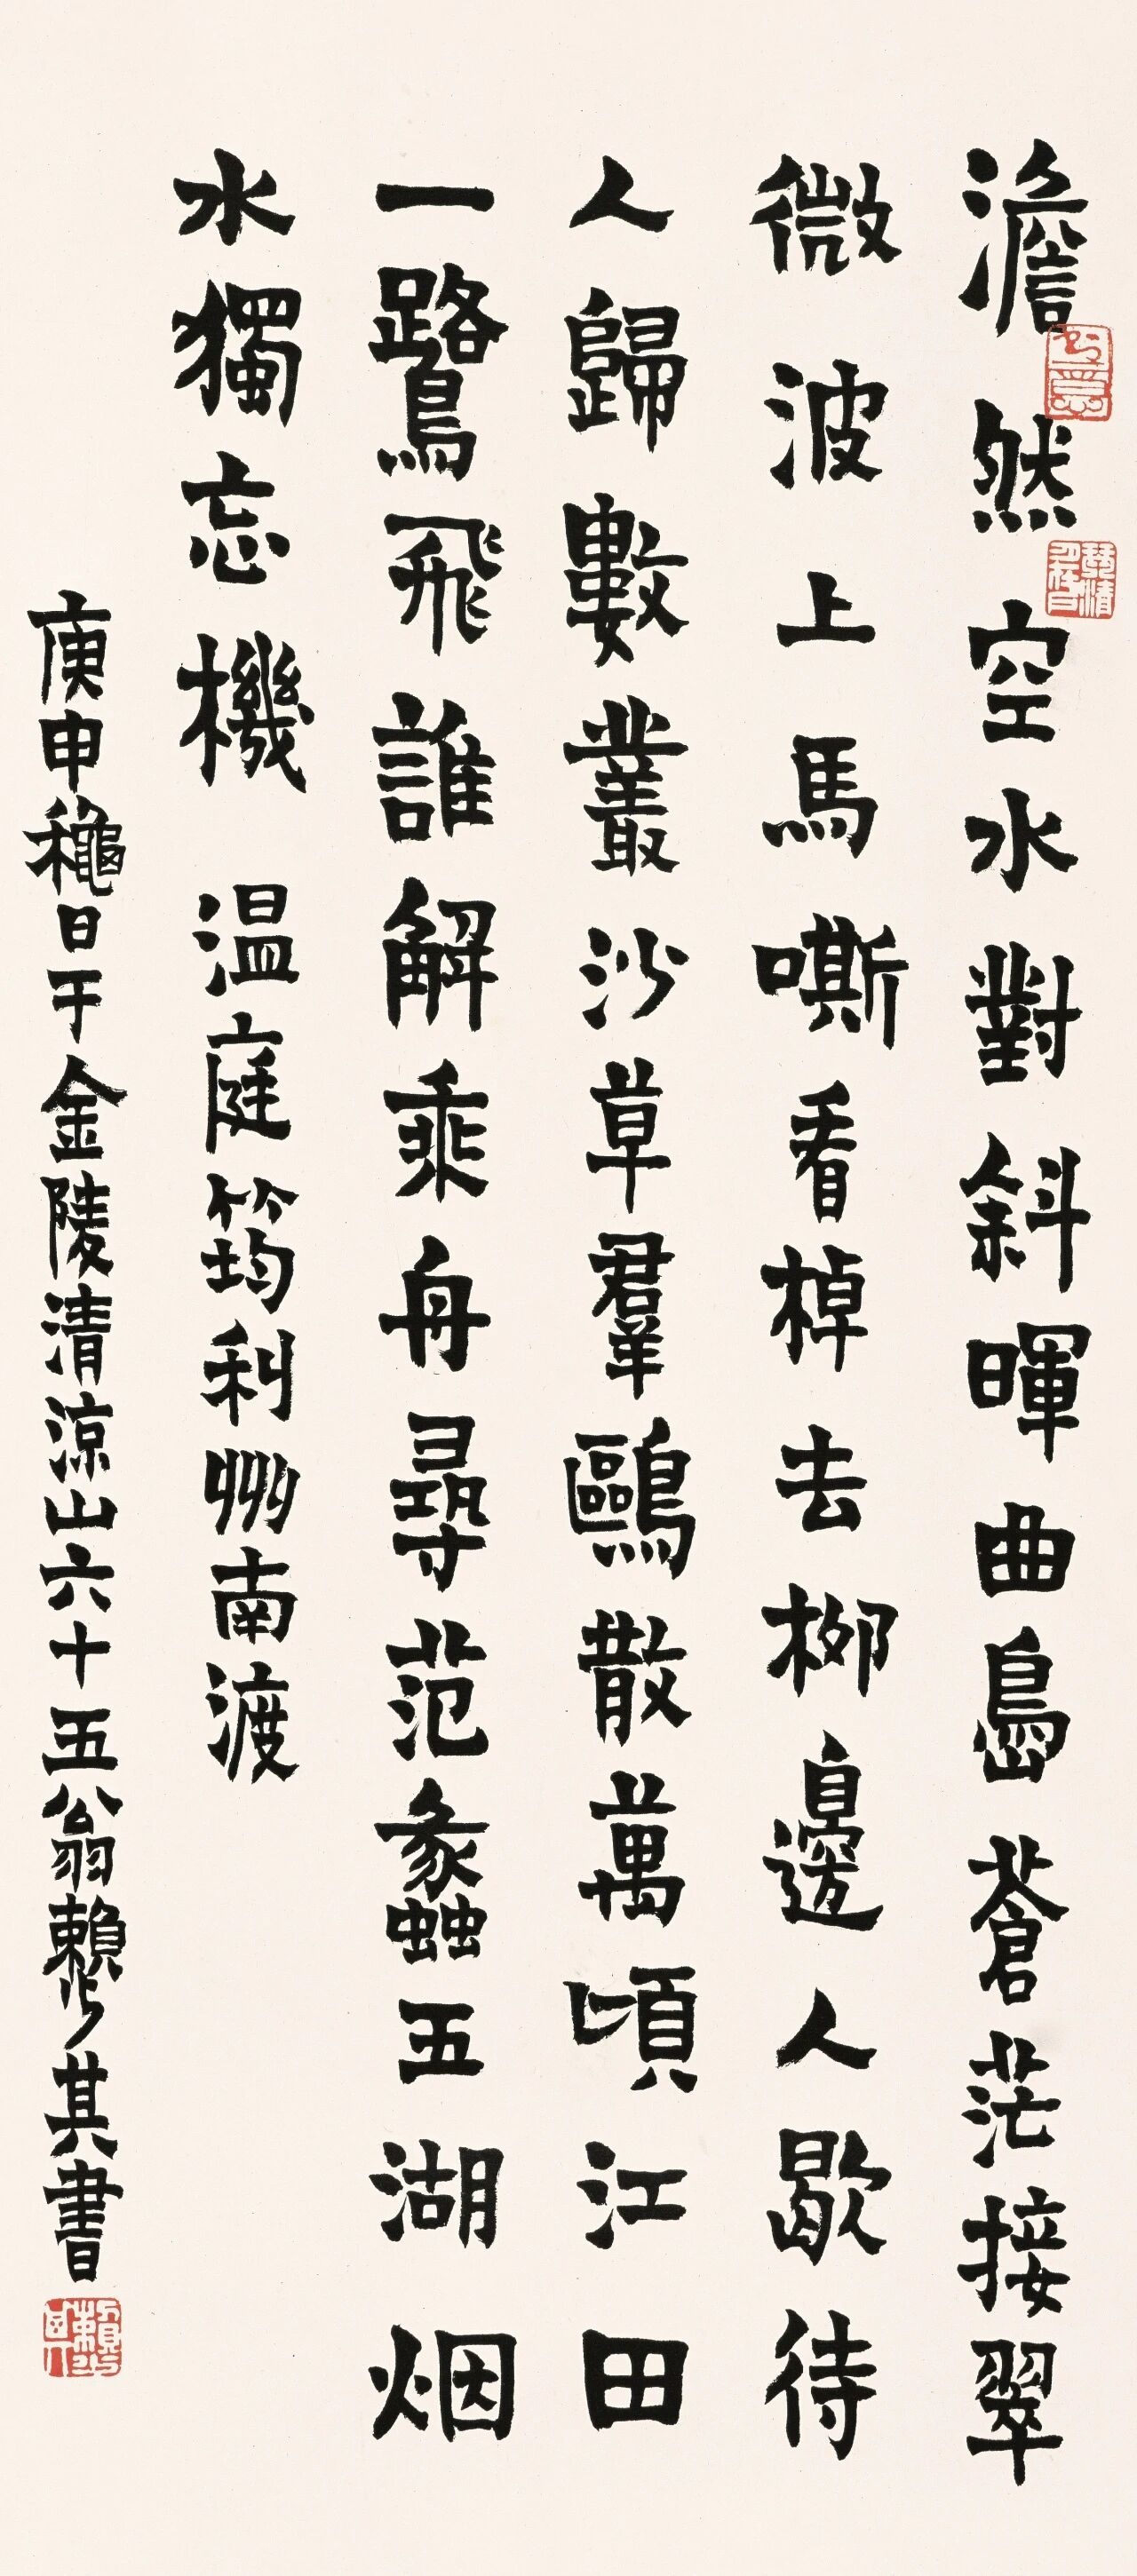 澹然空水對斜暉曲島蒼茫接翠
微波上馬嘶看棹去柳邊人歇待
人歸數叢沙草羣鷗散萬頃江田
一鷺飛誰解乘舟尋范蠡五湖烟
水獨忘機 温庭筠利州南渡
庚申龝日于金陵清涼山六十五翁賴少其書